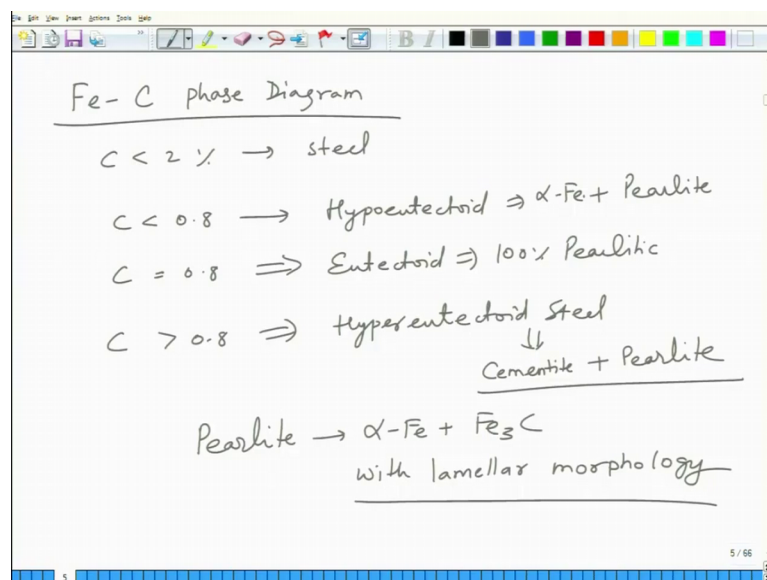 File Edit View Insert Actions Tools Help
B I
Fe-C phase Diagram
C < 2 % → steel
C < 0.8 → Hypoeutectoid ⇒ α-Fe + Pearlite
C = 0.8 ⇒ Eutectoid ⇒ 100% Pearlitic
C > 0.8 ⇒ Hypereutectoid Steel
⇓
Cementite + Pearlite
Pearlite → α-Fe + Fe₃C
with lamellar morphology
5 / 66
5